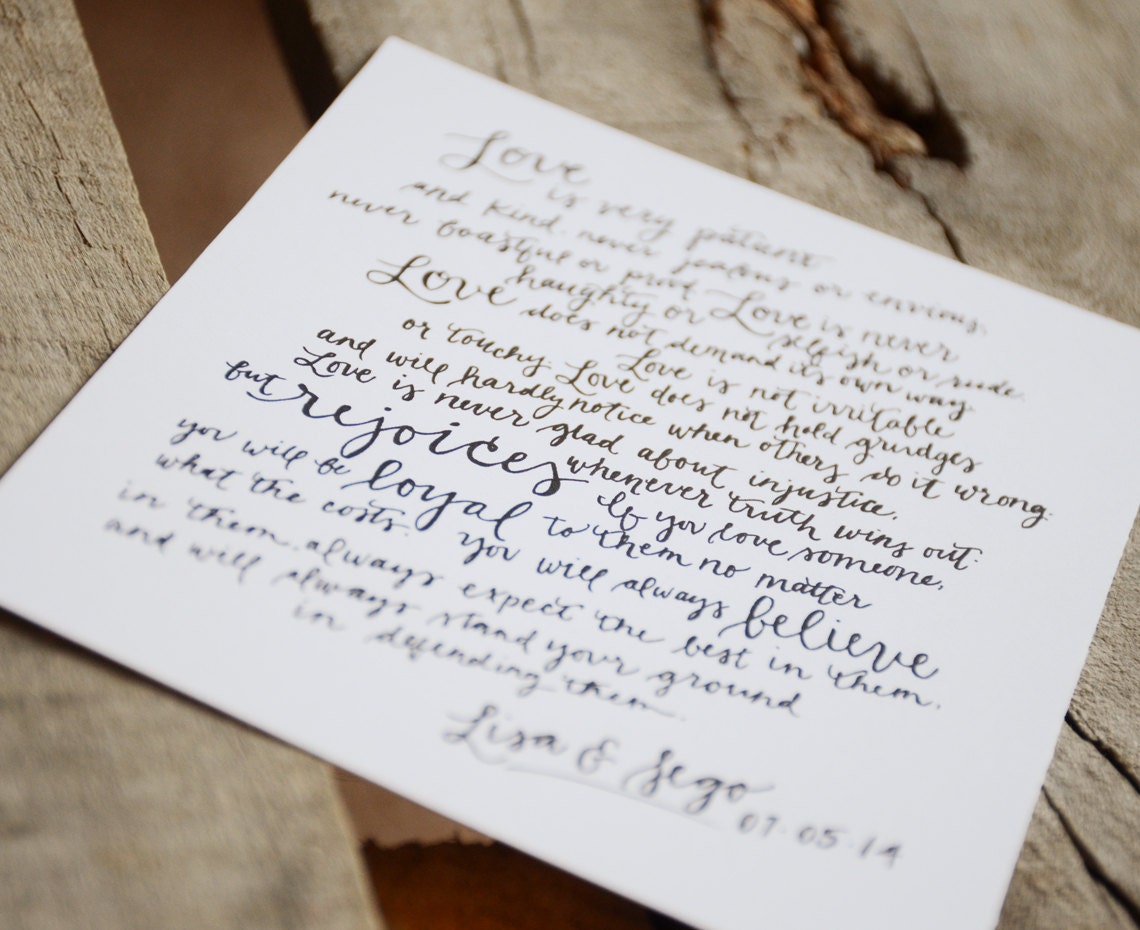 Love
is very patient
and kind. never jealous or envious,
never boastful or proud. Love is never
haughty or selfish or rude.
Love does not demand its own way.
Love is not irritable
or touchy. Love does not hold grudges
and will hardly notice when others do it wrong.
Love is never glad about injustice,
but rejoices whenever truth wins out.
If you love someone,
you will be loyal to them no matter
what the costs. you will always believe
in them. always expect the best in them,
and will always stand your ground
in defending them.
Lisa & Jego
07.05.14